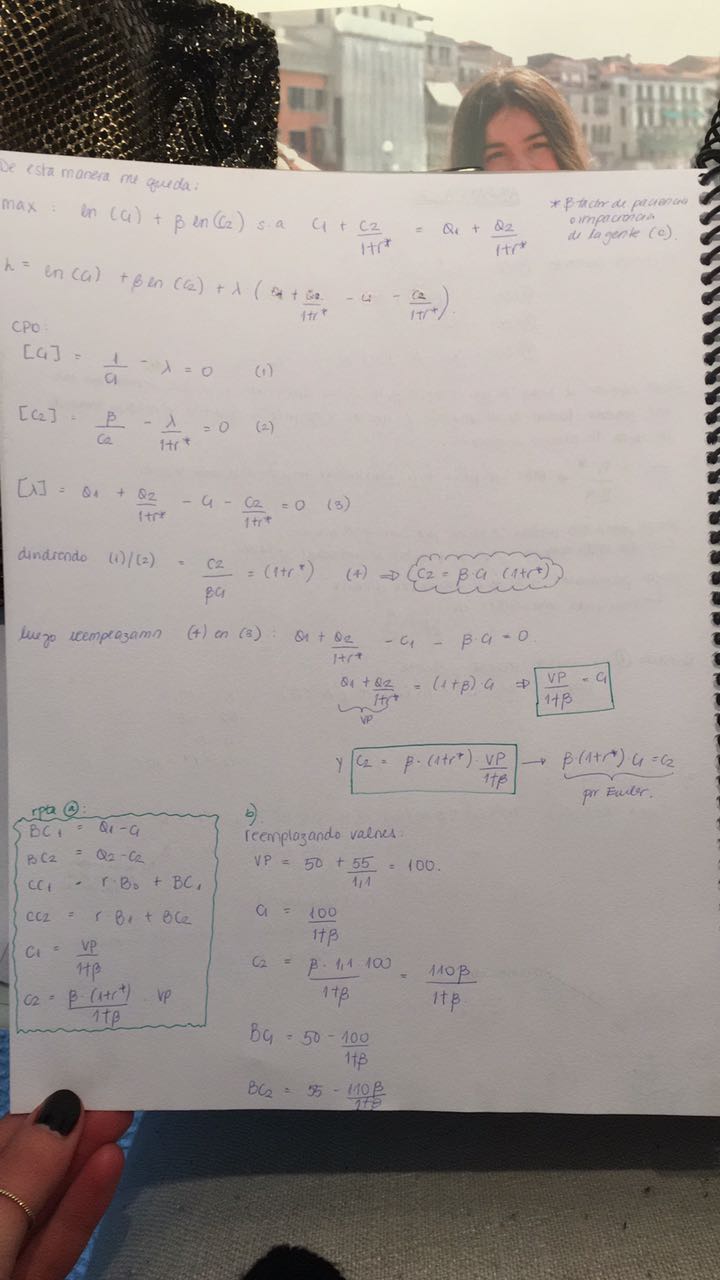 De esta manera me queda:
max: ln (C1) + β ln(C2) s.a C1 + C2/1+r* = Q1 + Q2/1+r*
* β factor de paciencia
o impaciencia
de la gente (C).
L = ln (C1) + β ln (C2) + λ (Q1 + Q2/1+r* - C1 - C2/1+r*)
CPO:
[C1] = 1/C1 - λ = 0 (1)
[C2] = β/C2 - λ/1+r* = 0 (2)
[λ] = Q1 + Q2/1+r* - C1 - C2/1+r* = 0 (3)
dividiendo (1)/(2) = C2/βC1 = (1+r*) (4) ⇒ C2 = β·C1 (1+r*)
luego reemplazamn (4) en (3): Q1 + Q2/1+r* - C1 - β·C1 = 0.
Q1 + Q2/1+r* = (1+β)·C1 ⇒ VP/1+β = C1
VP
y C2 = β·(1+r*)·VP/1+β → β·(1+r*)·C1 = C2
por Euler.
rpta a:
BC1 = Q1 - C1
BC2 = Q2 - C2
CC1 = r·B0 + BC1
CC2 = r·B1 + BC2
C1 = VP/1+β
C2 = β·(1+r*)/1+β · VP
b)
reemplazando valores:
VP = 50 + 55/1,1 = 100.
C1 = 100/1+β
C2 = β·1,1·100/1+β = 110β/1+β
BC1 = 50 - 100/1+β
BC2 = 55 - 110β/1+β